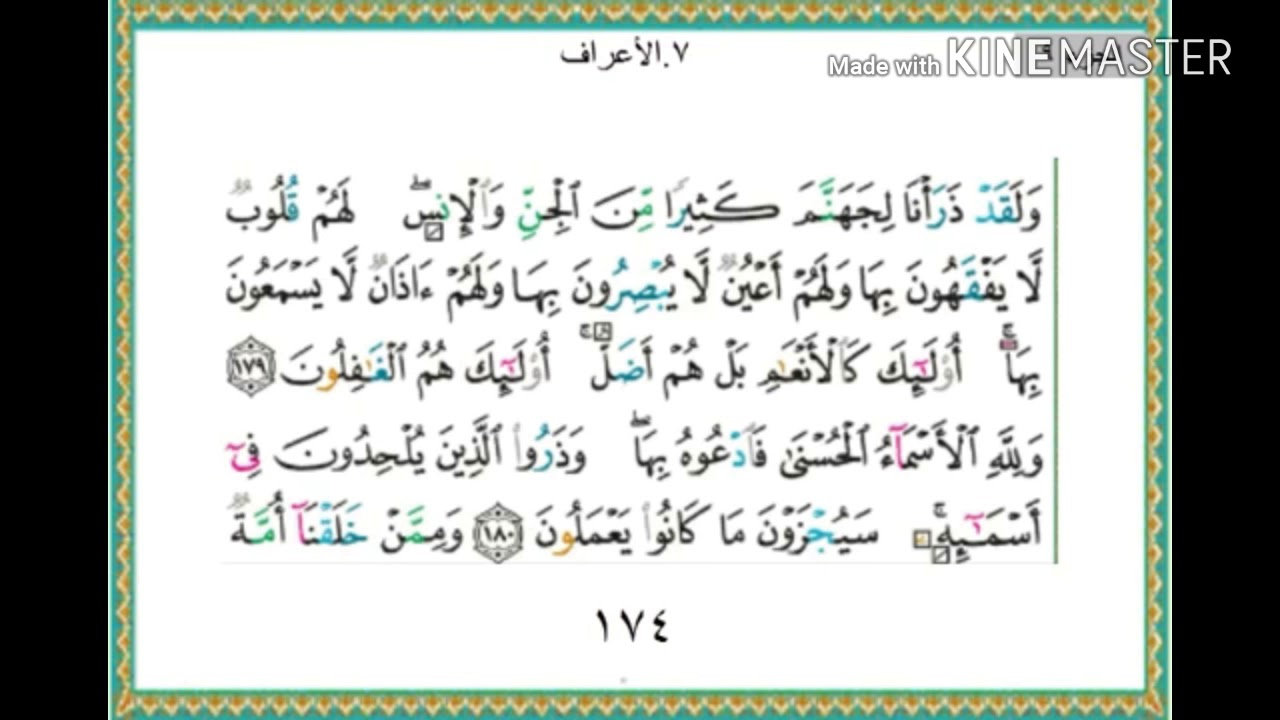 ٧.الأعراف
Made with KINEMASTER
وَلَقَدْ ذَرَأْنَا لِجَهَنَّمَ كَثِيرًا مِّنَ ٱلْجِنِّ وَٱلْإِنسِۖ لَهُمْ قُلُوبٌ
لَّا يَفْقَهُونَ بِهَا وَلَهُمْ أَعْيُنٌ لَّا يُبْصِرُونَ بِهَا وَلَهُمْ ءَاذَانٌ لَّا يَسْمَعُونَ
بِهَآۚ أُوْلَـٰٓئِكَ كَٱلْأَنْعَـٰمِ بَلْ هُمْ أَضَلُّۚ أُوْلَـٰٓئِكَ هُمُ ٱلْغَـٰفِلُونَ ١٧٩
وَلِلَّهِ ٱلْأَسْمَآءُ ٱلْحُسْنَىٰ فَٱدْعُوهُ بِهَاۖ وَذَرُوا۟ ٱلَّذِينَ يُلْحِدُونَ فِىٓ
أَسْمَـٰٓئِهِۦۚ سَيُجْزَوْنَ مَا كَانُوا۟ يَعْمَلُونَ ١٨٠ وَمِمَّنْ خَلَقْنَآ أُمَّةٌ
١٧٤